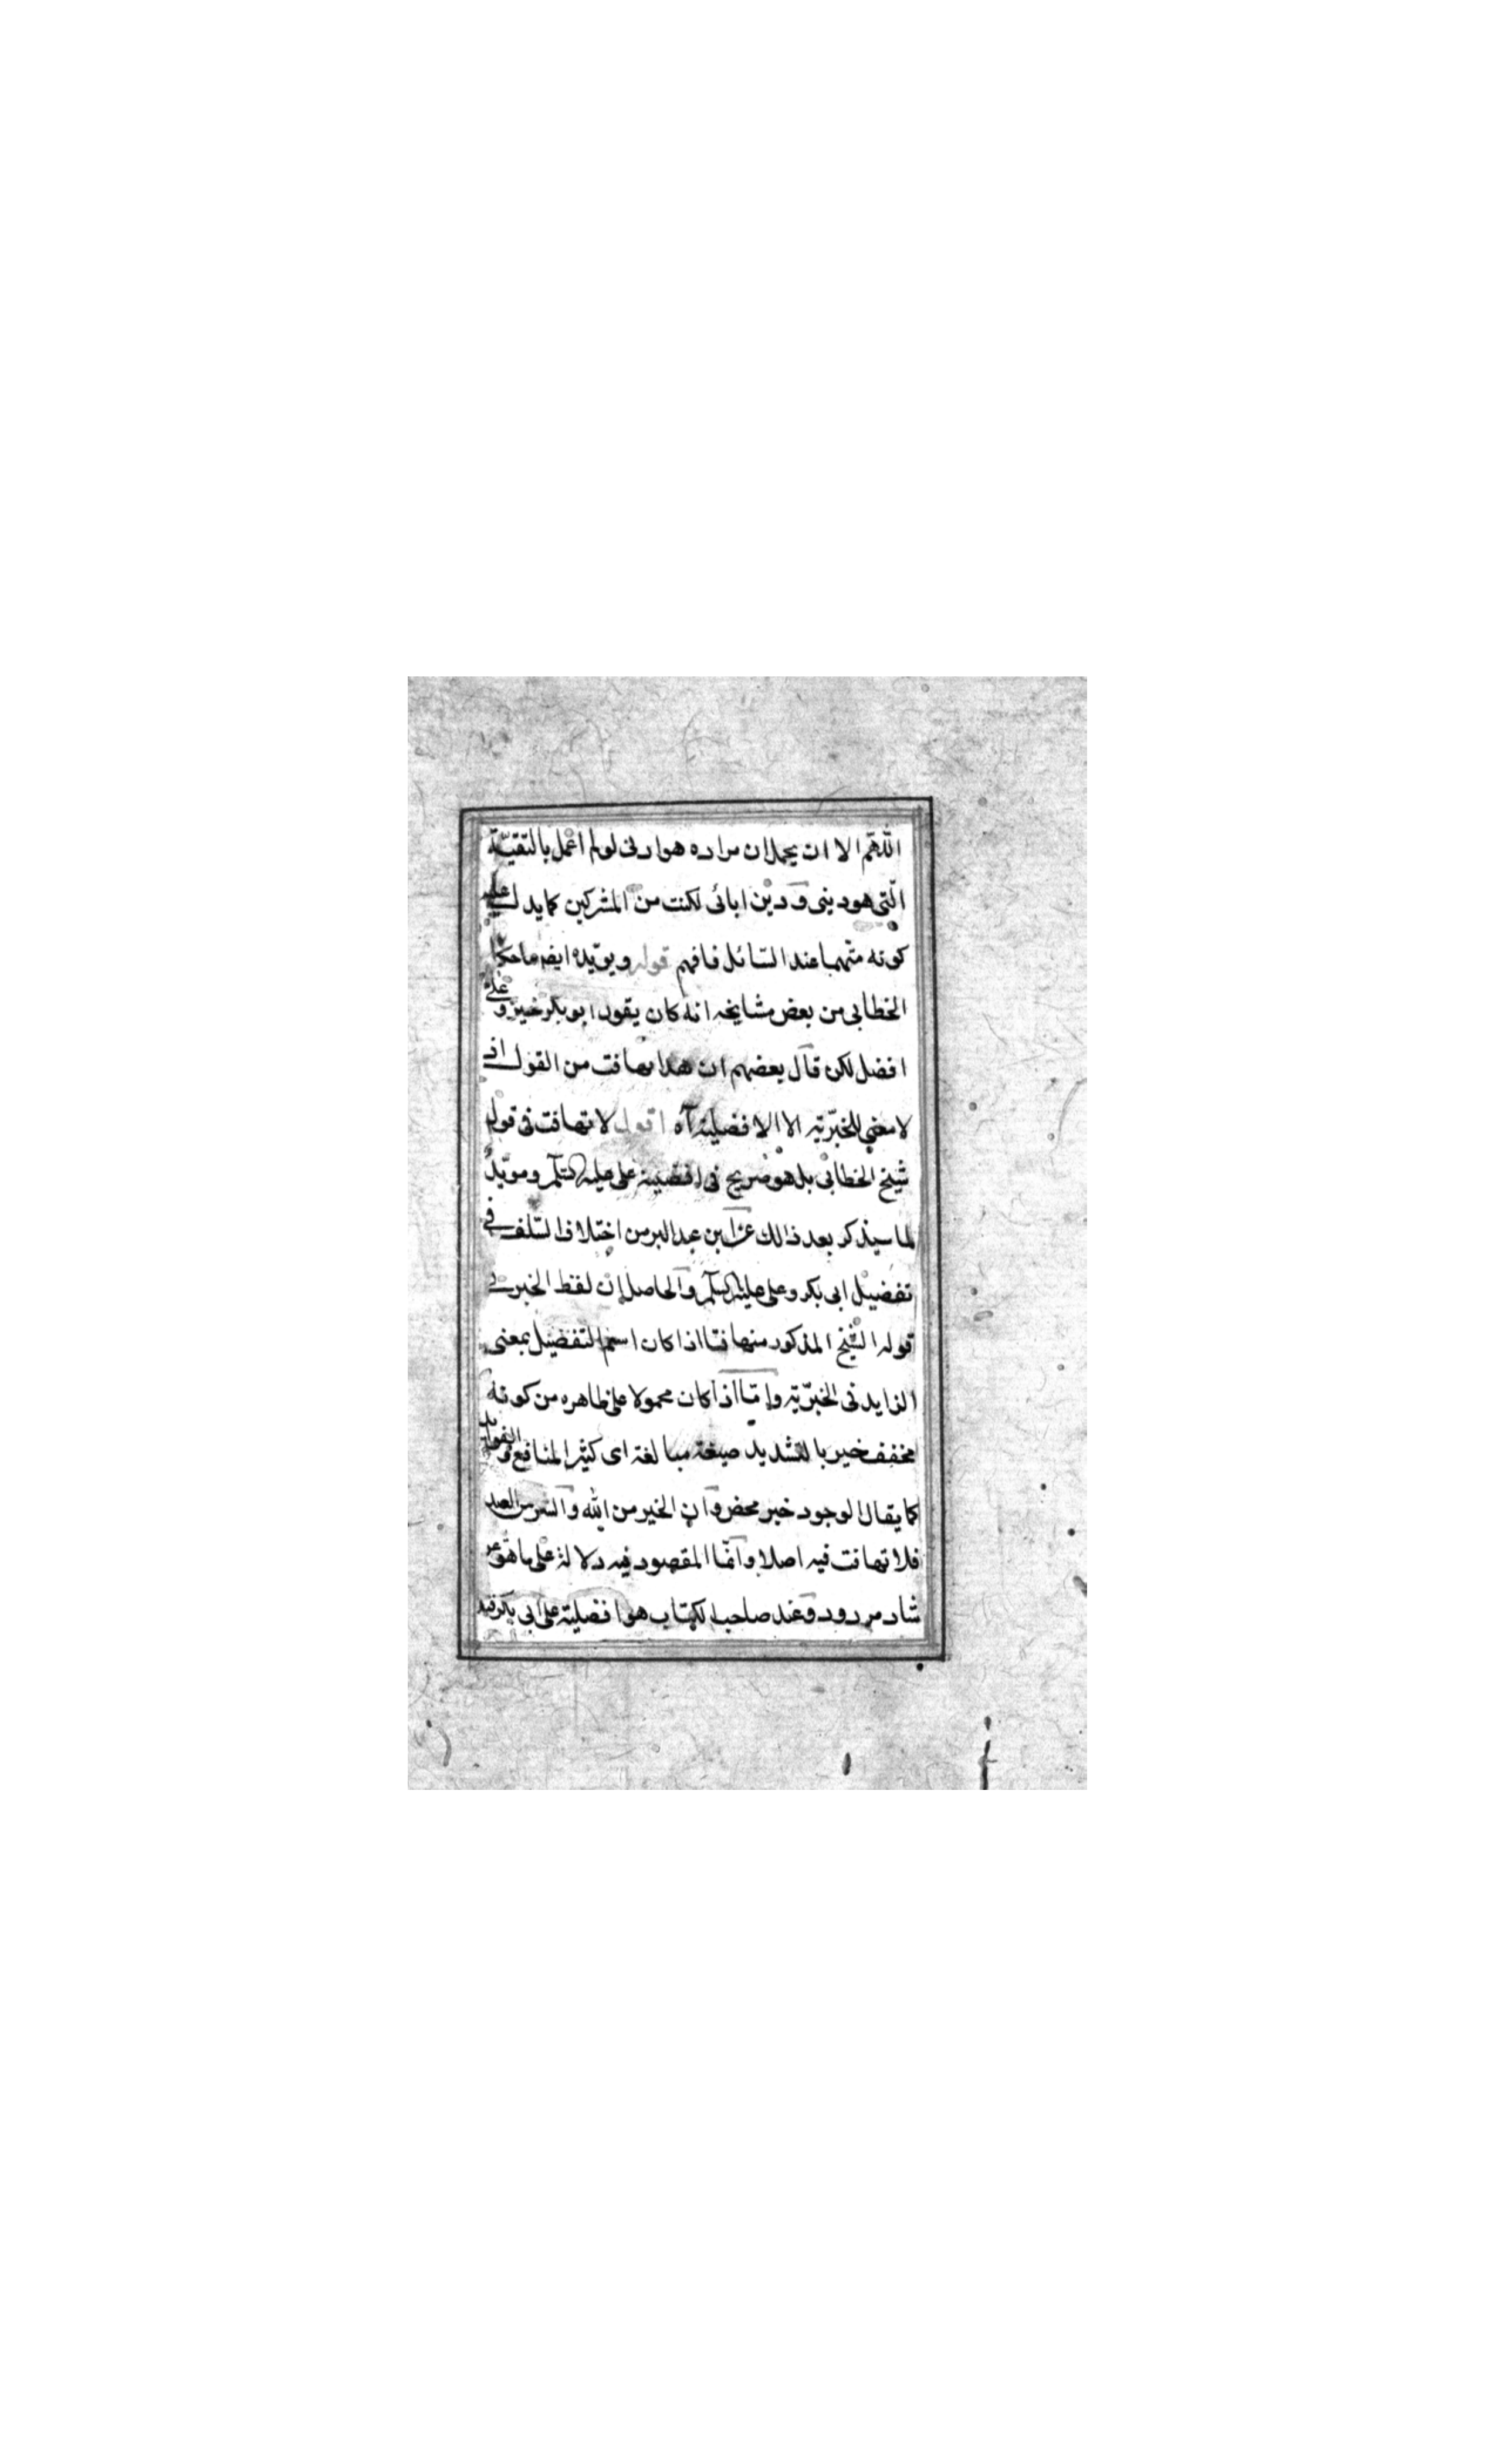 اللّهم الا ان يحمل ان مراده هو ار فى لو لم اعمل بالتقيّة
الّتى هو دينى و دين ابائى لكنت من المشركين كما يدل عليه
كونه متّهما عند السّائل فافهم قوله ويويّده ايضا ما حكاه
الخطابى من بعض مشايخه انه كان يقول ابو بكر خير و على
افضل لكن قال بعضهم ان هذا تهافت من القول اذ
لا معنى للخيريّه الا الافضليّة آه اقول لا تهافت فى قول
شيخ الخطابى بل هو صريح فى افضليّة على عليه السّلم و مويّد
لما سيذكر بعد ذالك عن ابن عبد البر من اختلاف السّلف فى
تفضيل ابى بكر و على عليه السّلم والحاصل ان لفظ الخير فى
قوله الشيخ المذكور متهافتا اذا كان اسم التفضيل بمعنى
الزايد فى الخيريّة و امّا اذا كان محمولا على ظاهره من كونه
مخفف خير بالتشديد صيغة مبالغة اى كثير المنافع و الفوايد
كما يقال الوجود خير محض و ان الخير من الله و الشر من العبد
فلا تهافت فيه اصلا و انّما المقصود فيه دلالة على ما هو
شاد مردود و عند صاحب الكتاب هو افضلية على ابى بكر فيه